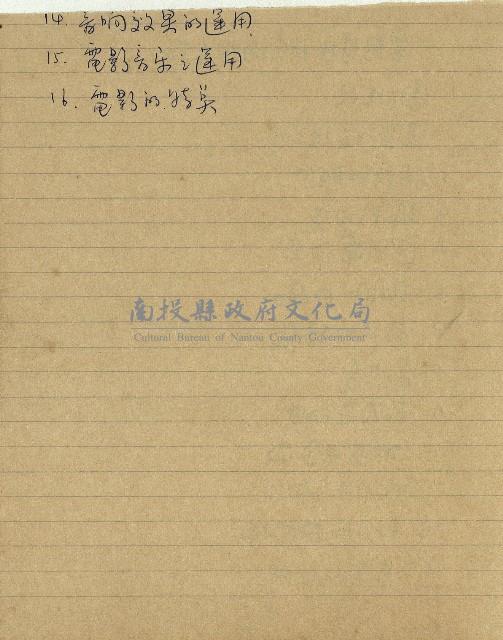 14. 音响效果的運用
15. 電影音乐之運用
16. 電影的特美
南投縣政府文化局
Cultural Bureau of Nantou County Government